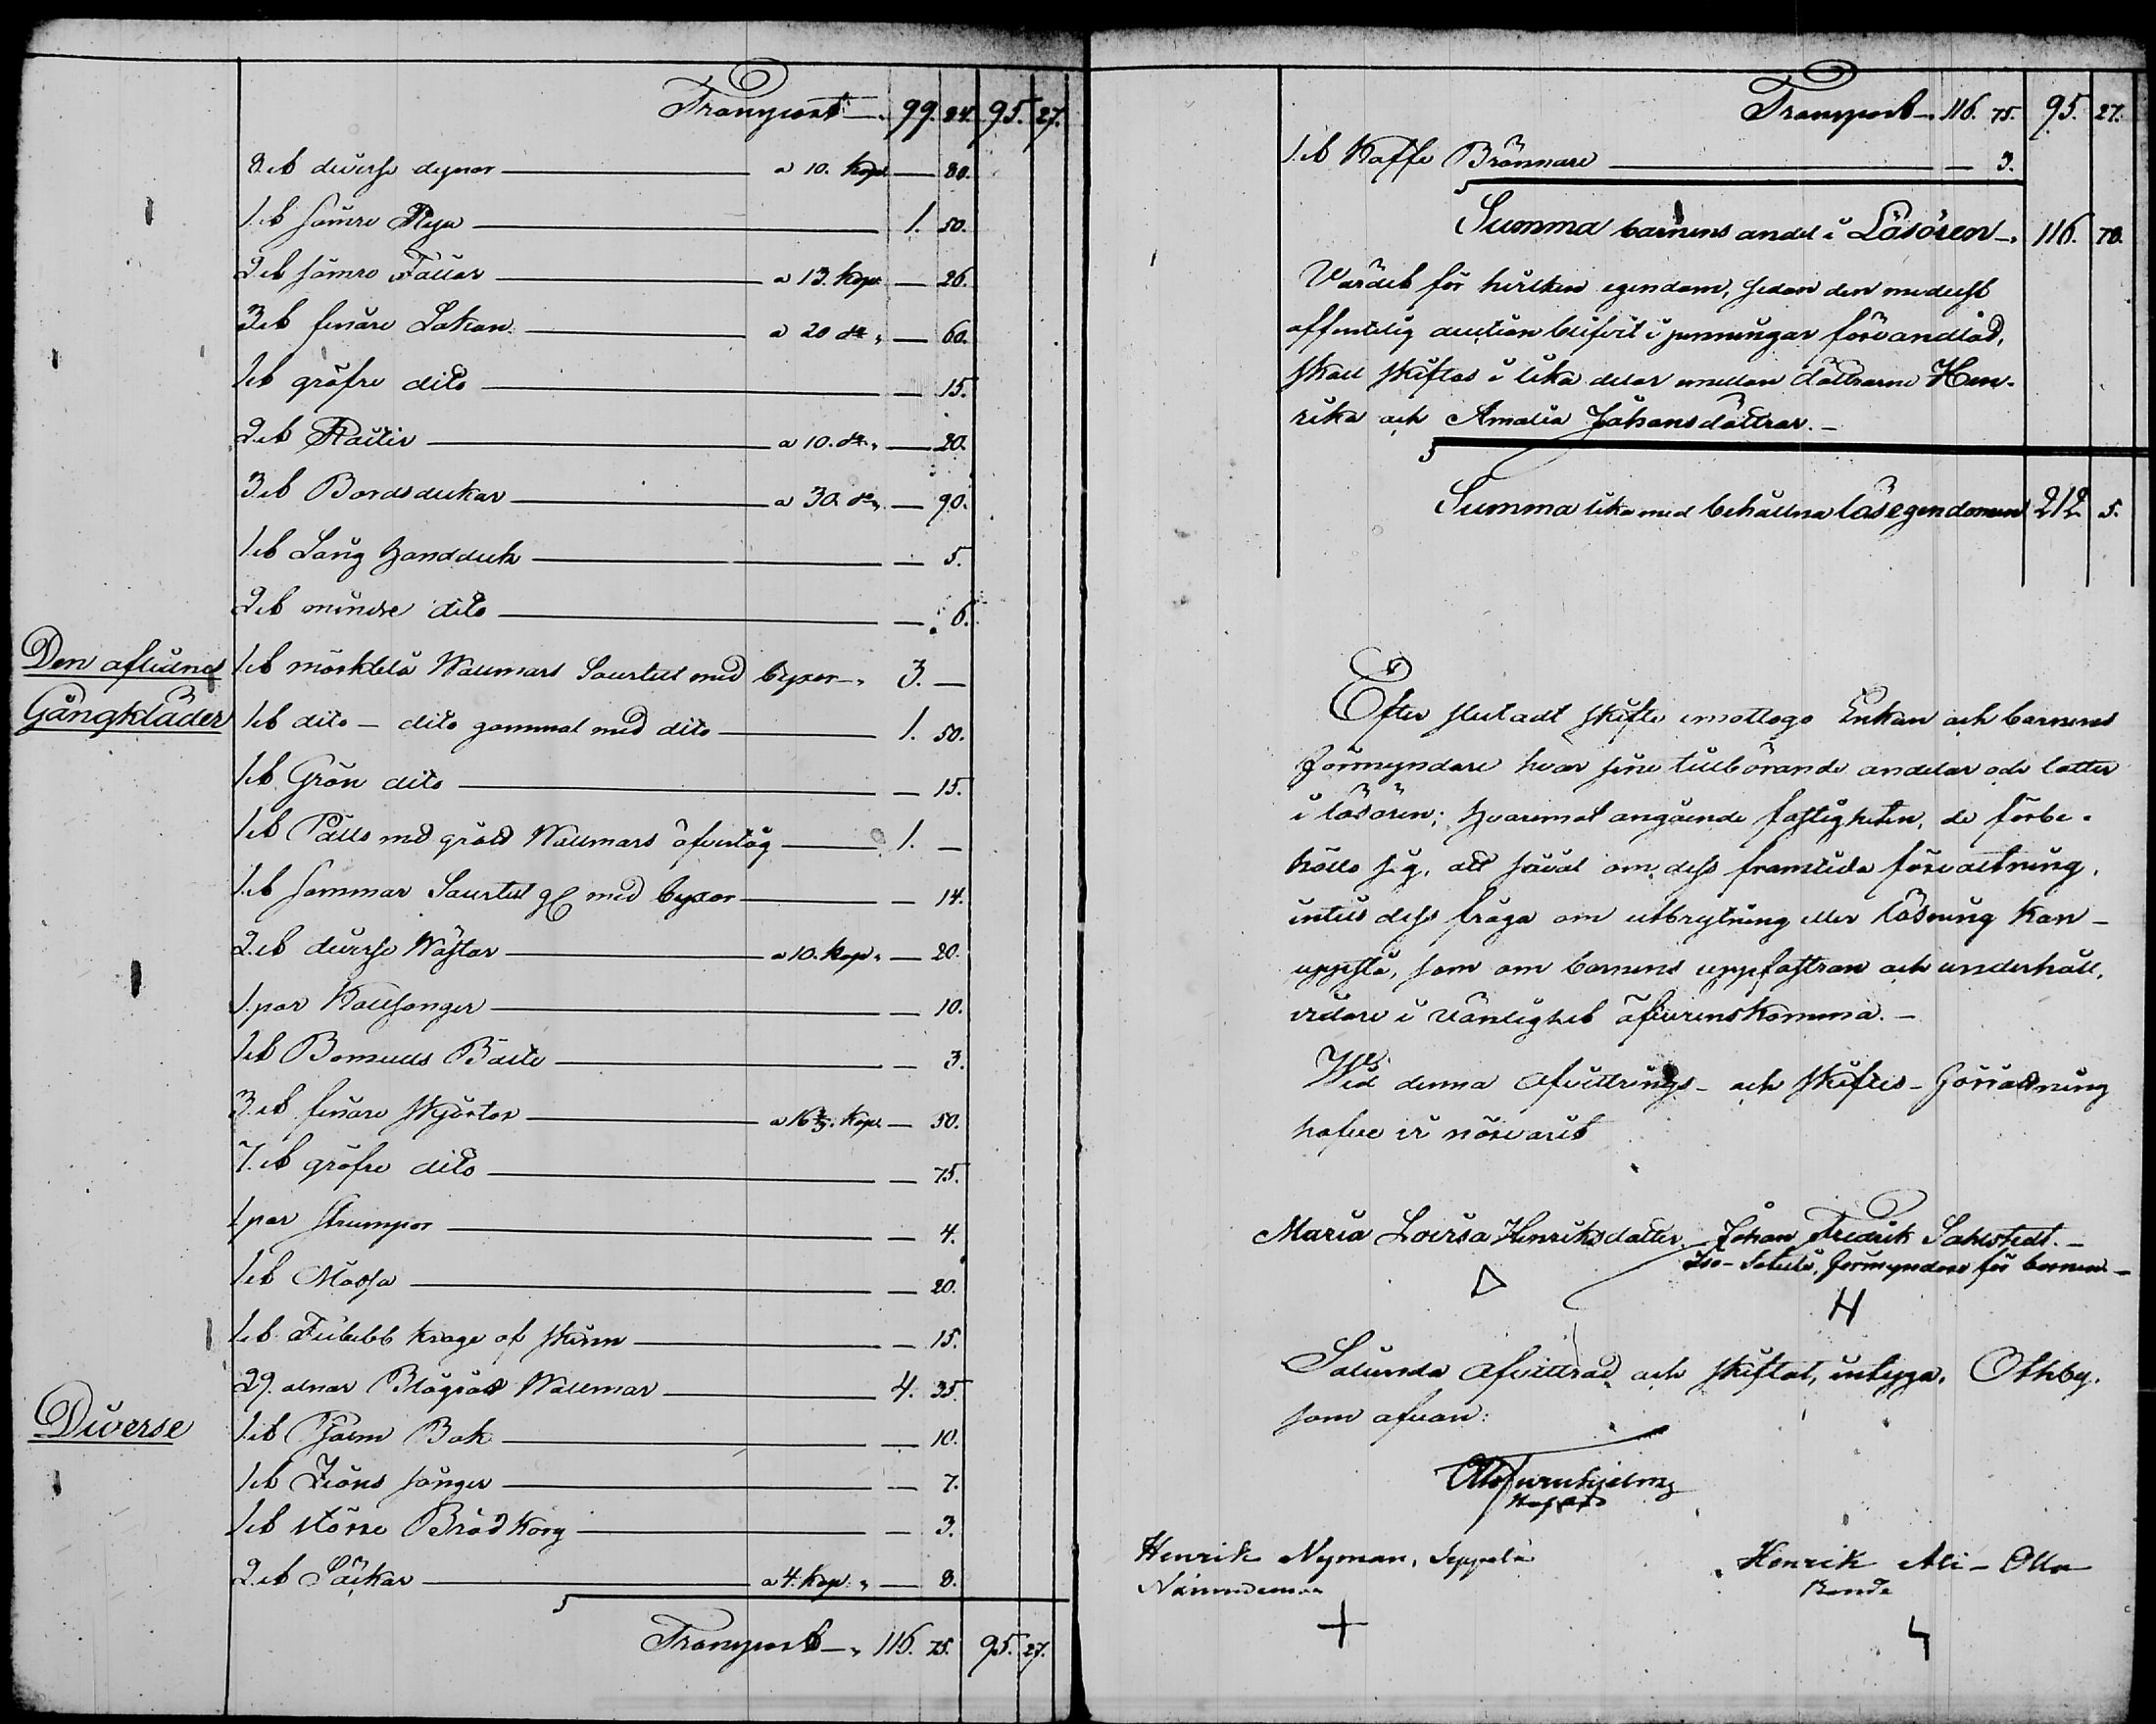 Transport 99. 24. 95. 27.
8. st diverse dynor a 10. kop. — 80.
1. st sämre Rya 1. 50.
2. st sämre Fällar a 13. kop. — 26.
3. st finare Lakan a 20 d:o — 60.
1. st gröfre dito — 15.
2. st a 10. d:o — 20.
3. st Bordsdukar a 30. d:o — 90.
1. st Lång handduk — 5.
2. st mindre dito — 6.
Den aflidnes
Gångkläder
1. st mörkblå Wallmars Surtut med byxor 3. —
1. st dito — dito gammal med dito 1. 50.
1. st Grön dito — 15.
1. st Päls med gråt Wallmars öfvertåg 1. —
1. st sommar Surtut med byxor — 14.
2. st diverse Wästar a 10. kop. — 20.
1. par Kallsonger — 10.
1. st Bomulls Bälte — 3.
3. st finare skjortor a 16 2/3. kop. — 50.
7. st gröfre dito — 75.
1 par strumpor — 4.
1. st Mössa — 20.
1. st krage af skinn — 15.
Diverse
29. alnar Blågrått Wallmar 4. 35.
1. st Psalm Bok — 10.
1. st Zions sånger — 7.
1. st större Brödkorg — 3.
2. st Säckar a 4. kop. — 8.
Transport 116. 75. 95. 27.
Transport 116. 75. 95. 27.
1. st Kaffe Brännare — 3.
Summa barnens andel i Lösören 116. 78.
Värdet för hvilken egendom, sedan den medelst
offentelig auction blifvit i penningar förvandlad,
skall skiftas i lika delar mellan döttrarne Hen-
rika och Amalia Johansdöttrar.
Summa lika med behållna lösegendomen 212 5.
Efter slutadt skifte emottogo Enkan och barnens
Förmyndare hvar sine tillhörande andelar och lotter
i lösören; hvaremot angående fastigheten, de förbe-
höllo sig, att såväl om dess framtida förvaltning,
intill dess fråga om utbrytning eller lösning kan
uppstå, som om barnens uppfostran och underhåll,
vidare i vänlighet öfverenskomma.
Wid denna afvittrings- och skiftes-förrättning
hafve vi närvarit
Maria Lovisa Henriksdotter Johan Fredrik Sahlstedt.
Iso-Setula, förmyndare för barnen
H
Salunda afvittrad och skiftat, intyga. Ort och dag
som ofvan:
Otto Furuhjelm
Henrik Nyman, Seppälä Henrik Ali-Olla
Nämndeman Bonde